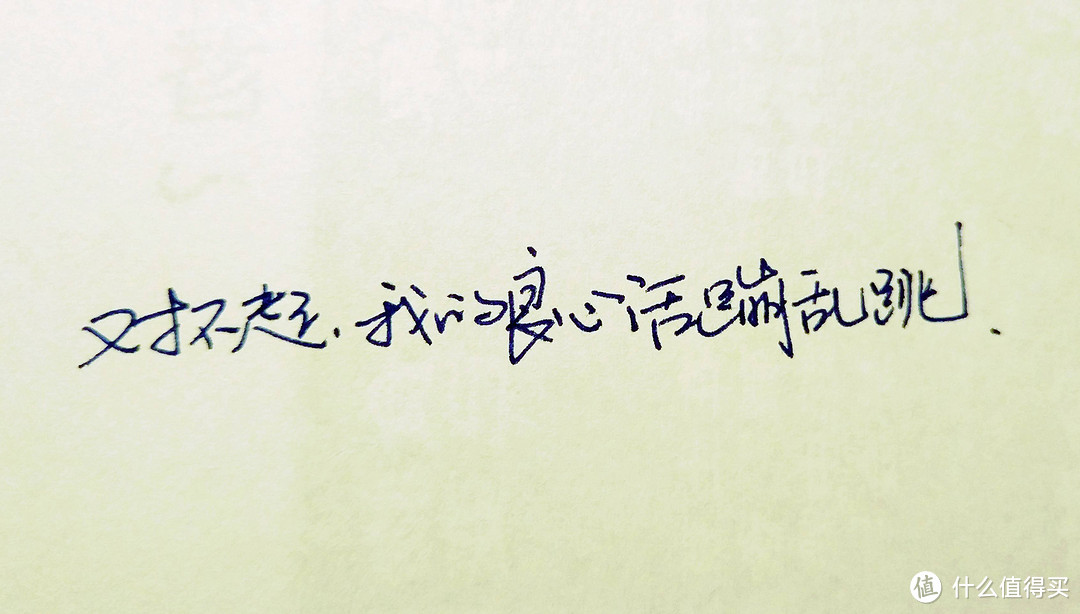 对不起,我的良心活蹦乱跳.
值 什么值得买